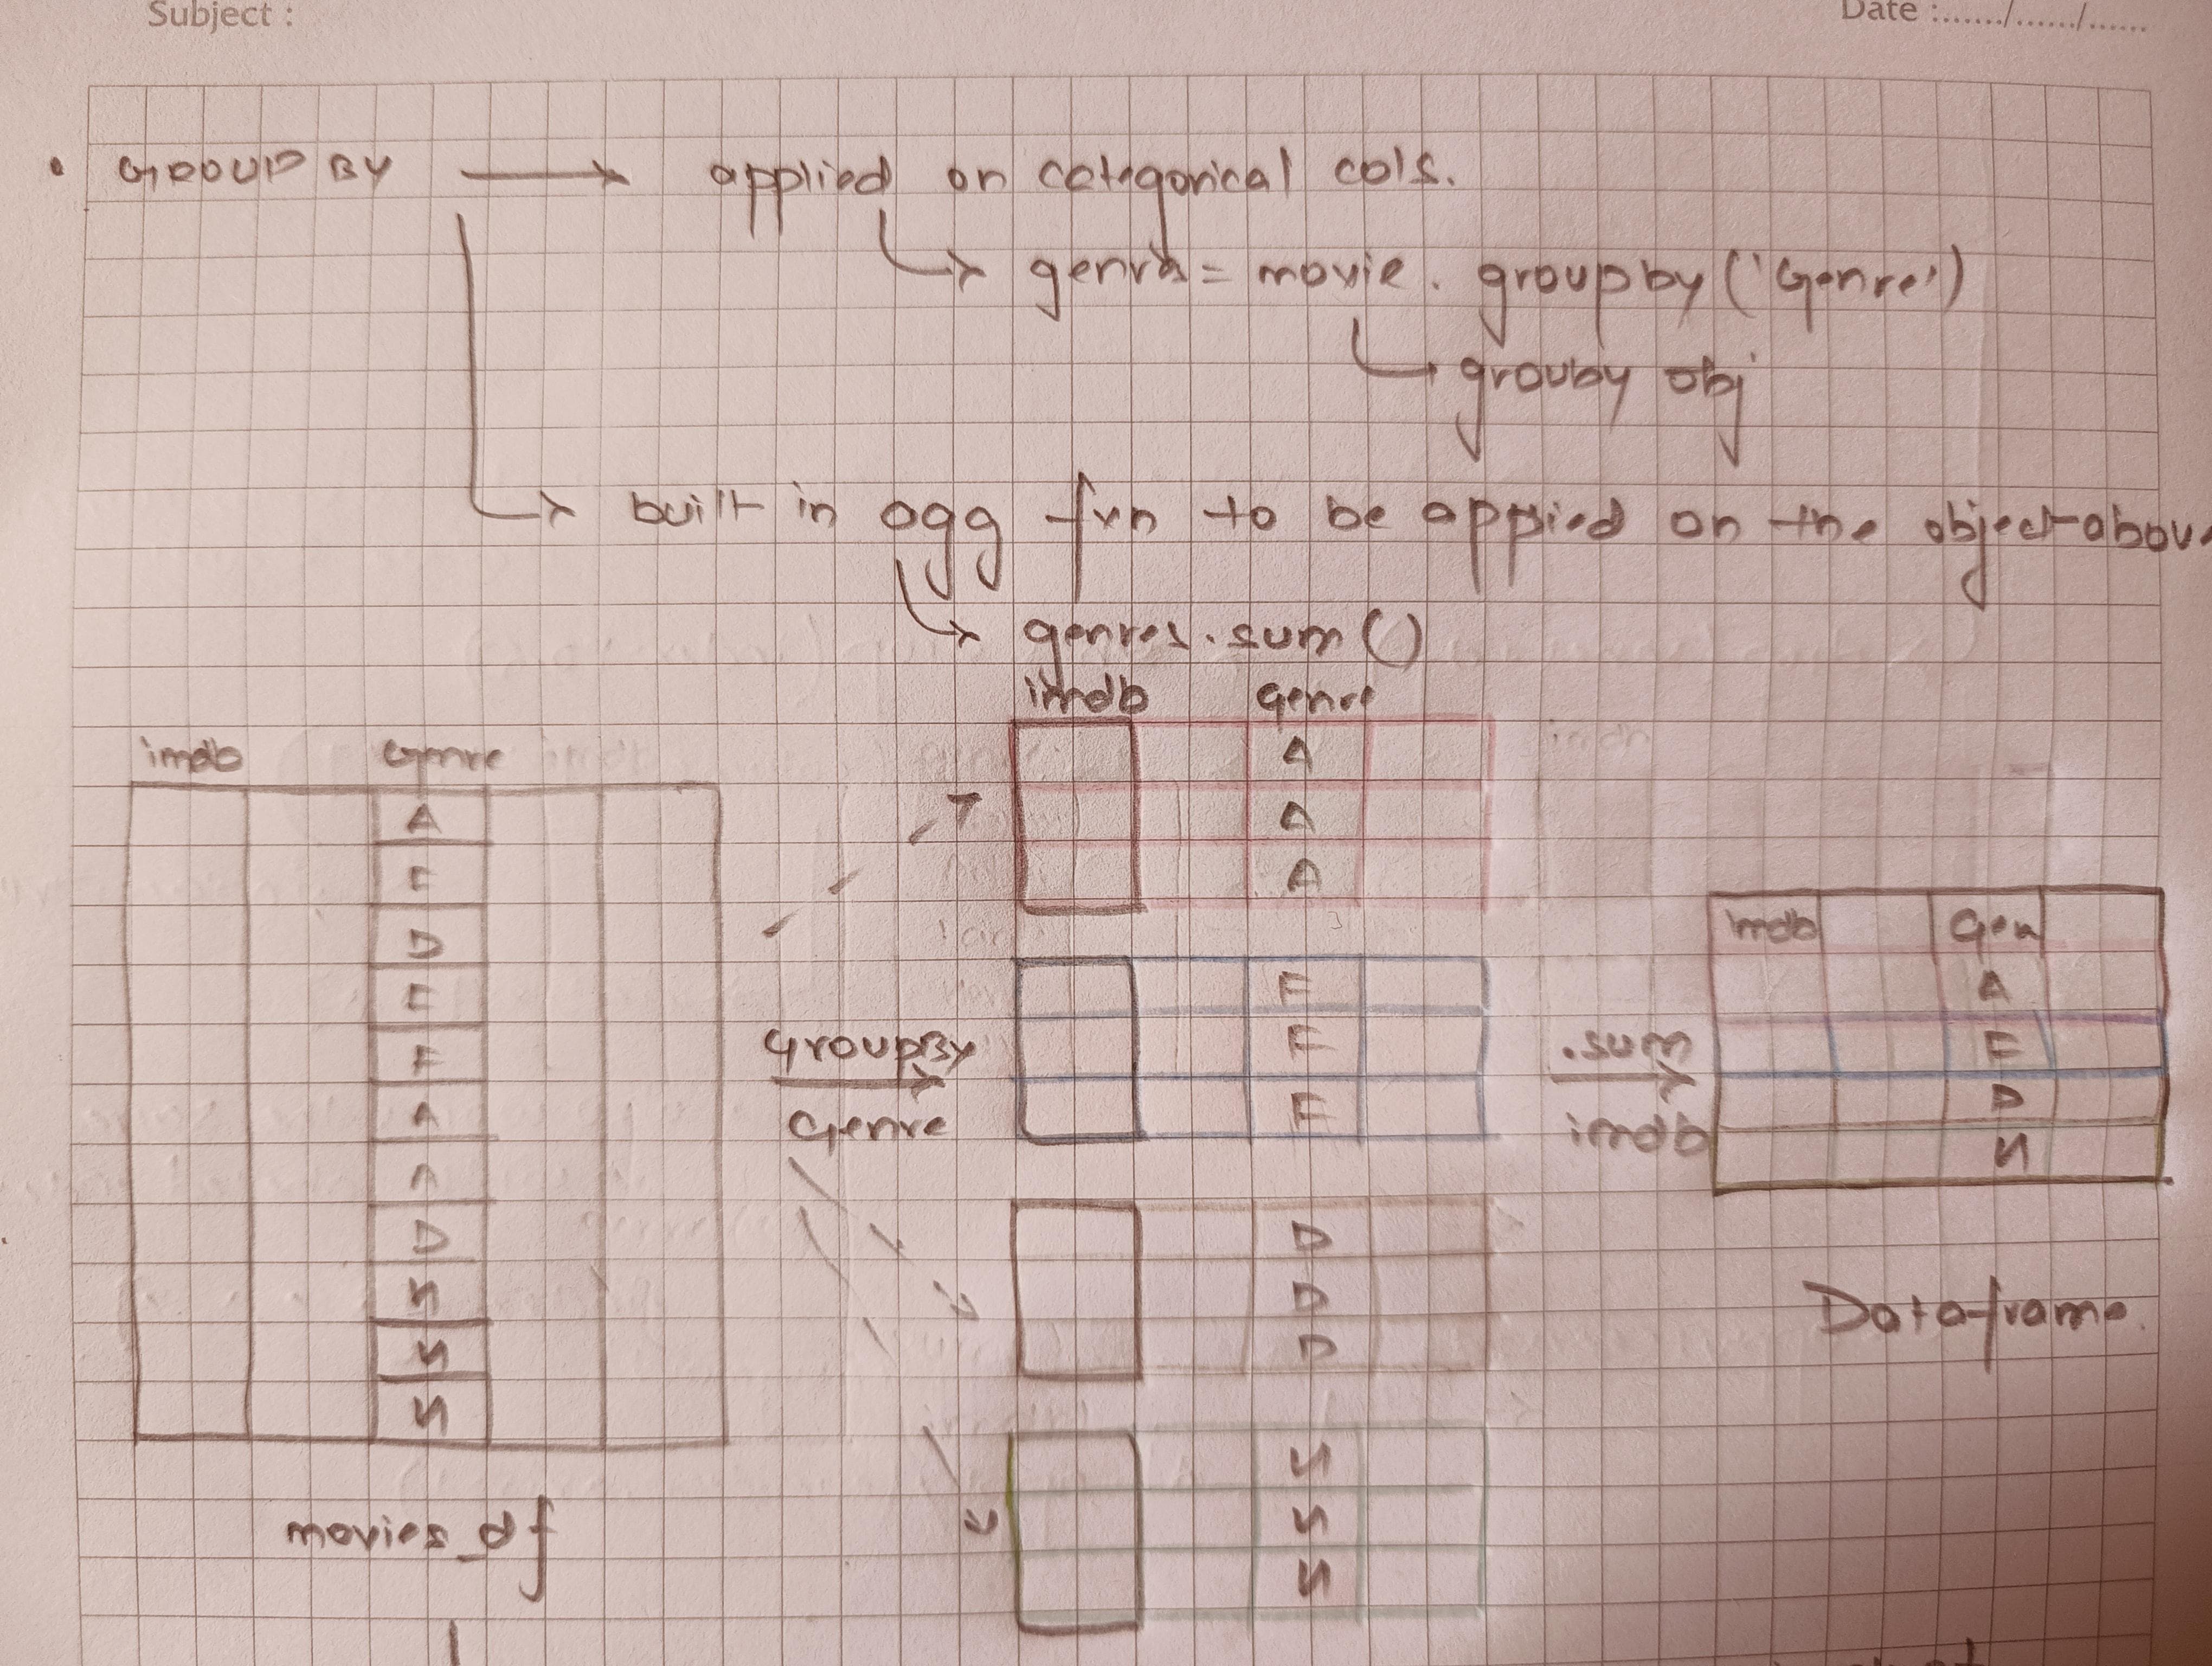 Subject :
Date :......./......./.......
• GROUP BY → applied on categorical cols.
genrs = movie. groupby ('Genre')
grouby obj
built in agg fxn to be applied on the object above
genres.sum()
imdb Genre
A
A
A
imdb Genre
A
F
D
F
F
A
A
D
N
N
N
movies_df
GroupBy
Genre
F
F
F
D
D
D
N
N
N
.sum
imdb
imdb Gen
A
F
D
N
Dataframe